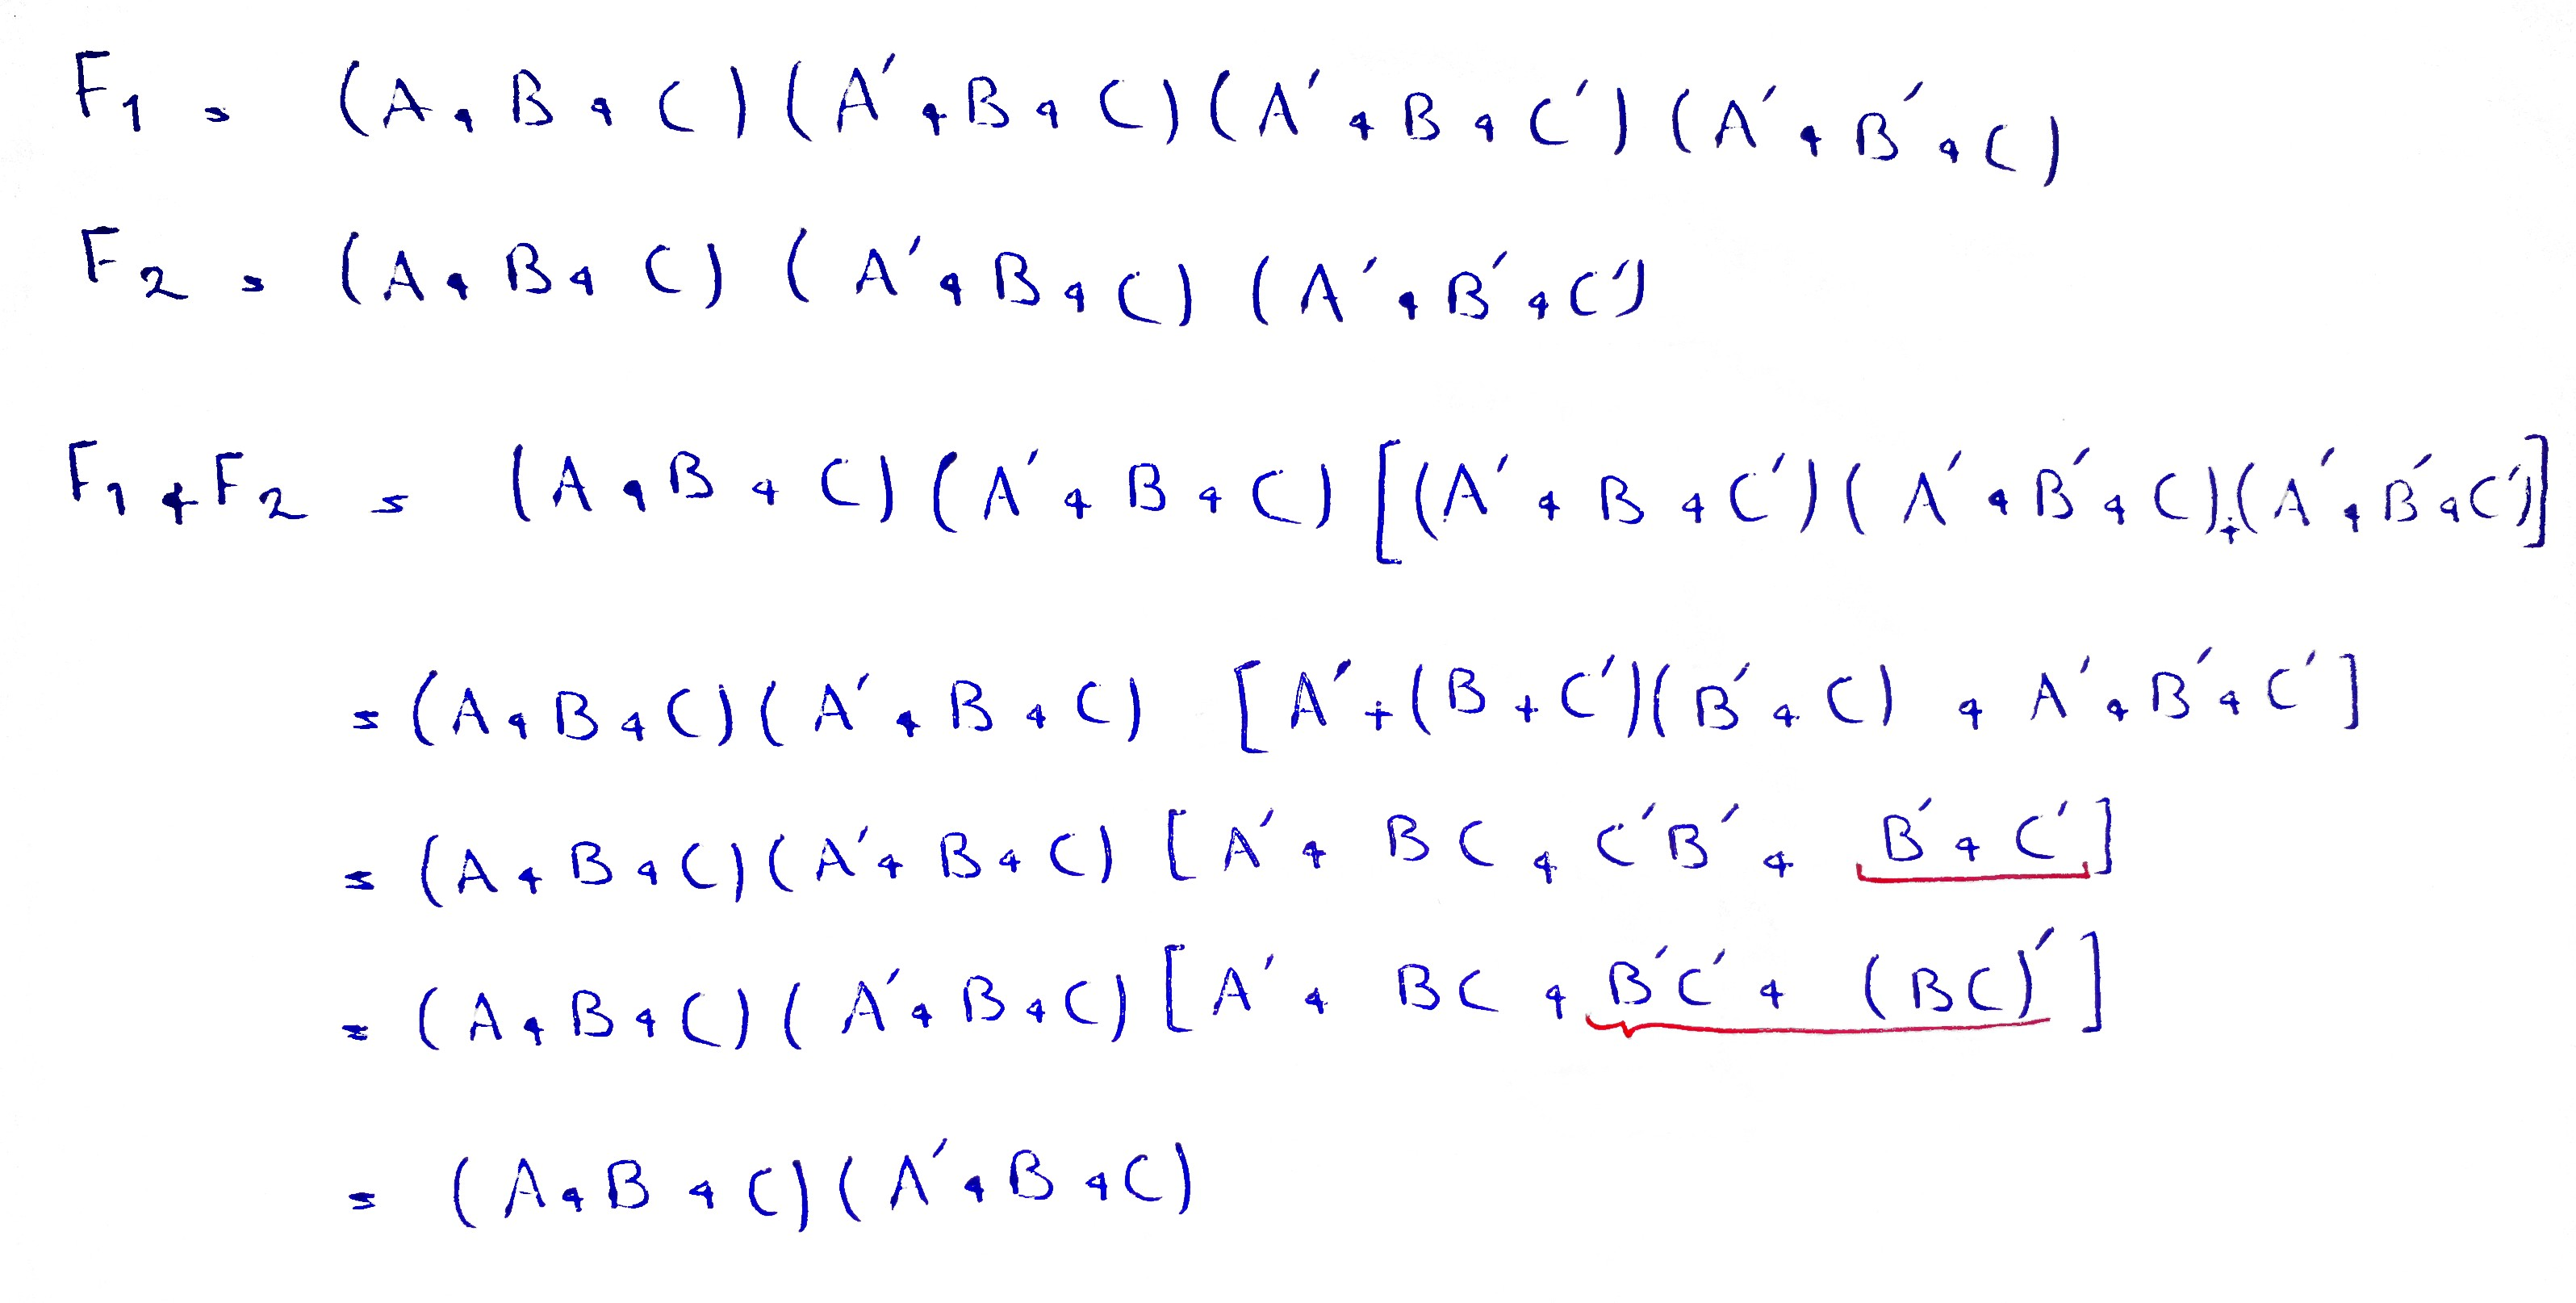 F1 = (A + B + C)(A' + B + C)(A' + B + C')(A' + B' + C)
F2 = (A + B + C) (A' + B + C) (A' + B' + C')
F1 + F2 = (A + B + C)(A' + B + C)[(A' + B + C')(A' + B' + C)+(A' + B' + C')]
= (A + B + C)(A' + B + C) [A' + (B + C')(B' + C) + A' + B' + C']
= (A + B + C)(A' + B + C) [A' + BC + C'B' + B' + C']
= (A + B + C)(A' + B + C)[A' + BC + B'C' + (BC)']
= (A + B + C)(A' + B + C)